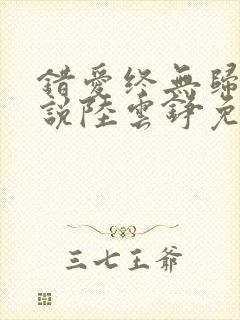 錯愛終無歸
說陸雲錚免
三七王爺